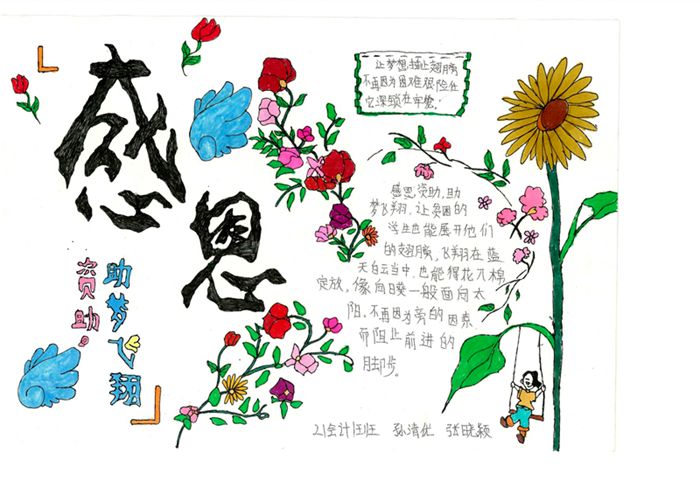 感恩
资助。
助梦飞翔
让梦想插上翅膀
不再因为困难艰险在
它深锁在牢笼.
感恩资助,助
梦飞翔,让贫困的
学生也能展开他们
的翅膀,飞翔在蓝
天白云当中,也能得花儿棉
定放,像向日葵一般面向太
阳,不再因为旁的因素
而阻止前进的
脚步。
21会计 孙清优 张晓颖